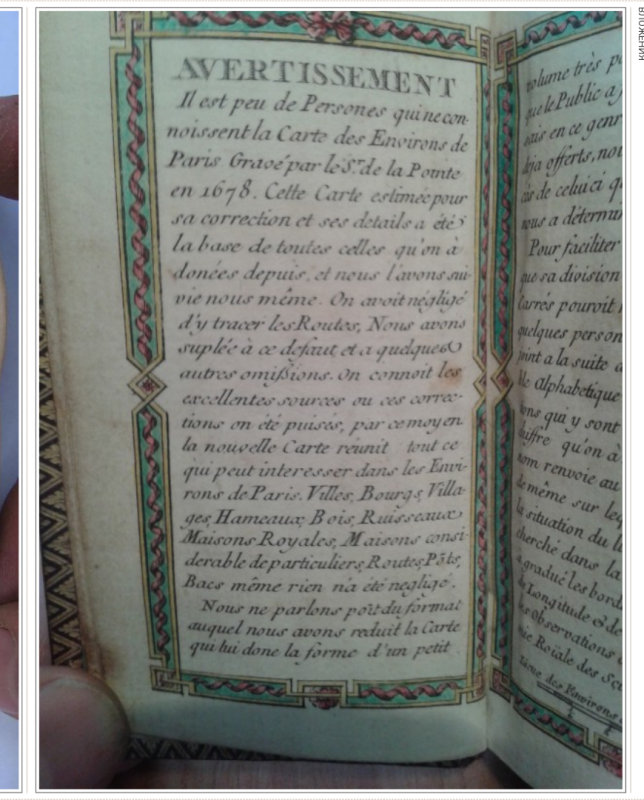 AVERTISSEMENT
Il est peu de Persones qui ne con-
noissent la Carte des Environs de
Paris Gravé par le Sr. de la Pointe
en 1678. Cette Carte estimée pour
sa correction et ses details a été
la base de toutes celles qu'on à
donées depuis, et nous l'avons sui-
vie nous même. On avoit négligé
d'y tracer les Routes, Nous avons
suplée à ce defaut et a quelques
autres omissions. On connoit les
excellentes sources ou ces correc-
tions on été puisés, par ce moyen
la nouvelle Carte réunit tout ce
qui peut interesser dans les Envi-
rons de Paris. Villes, Bourgs, Villa-
ges, Hameaux, Bois, Ruisseaux,
Maisons Royales, Maisons consi-
derable de particuliers, Routes, Pôts,
Bacs même rien n'a été negligé.
Nous ne parlons pôit du format
auquel nous avons reduit la Carte
qui lui done la forme d'un petit
volume très
que le Public a
mais en ce genr
deja offerts, nou
de celui ci qu
nous a détermin
Pour faciliter
que sa division
Carrés pouroit
quelques person
joint a la suite
ble alphabetique
ions qui y sont
chiffre qu'on à
nom renvoie au
de même sur leq
la situation du l
cherché dans la
gradué les bord
Longitude & de
Observations
Roiale des Sc
des Environs
ВЛОЖЕНИЯ